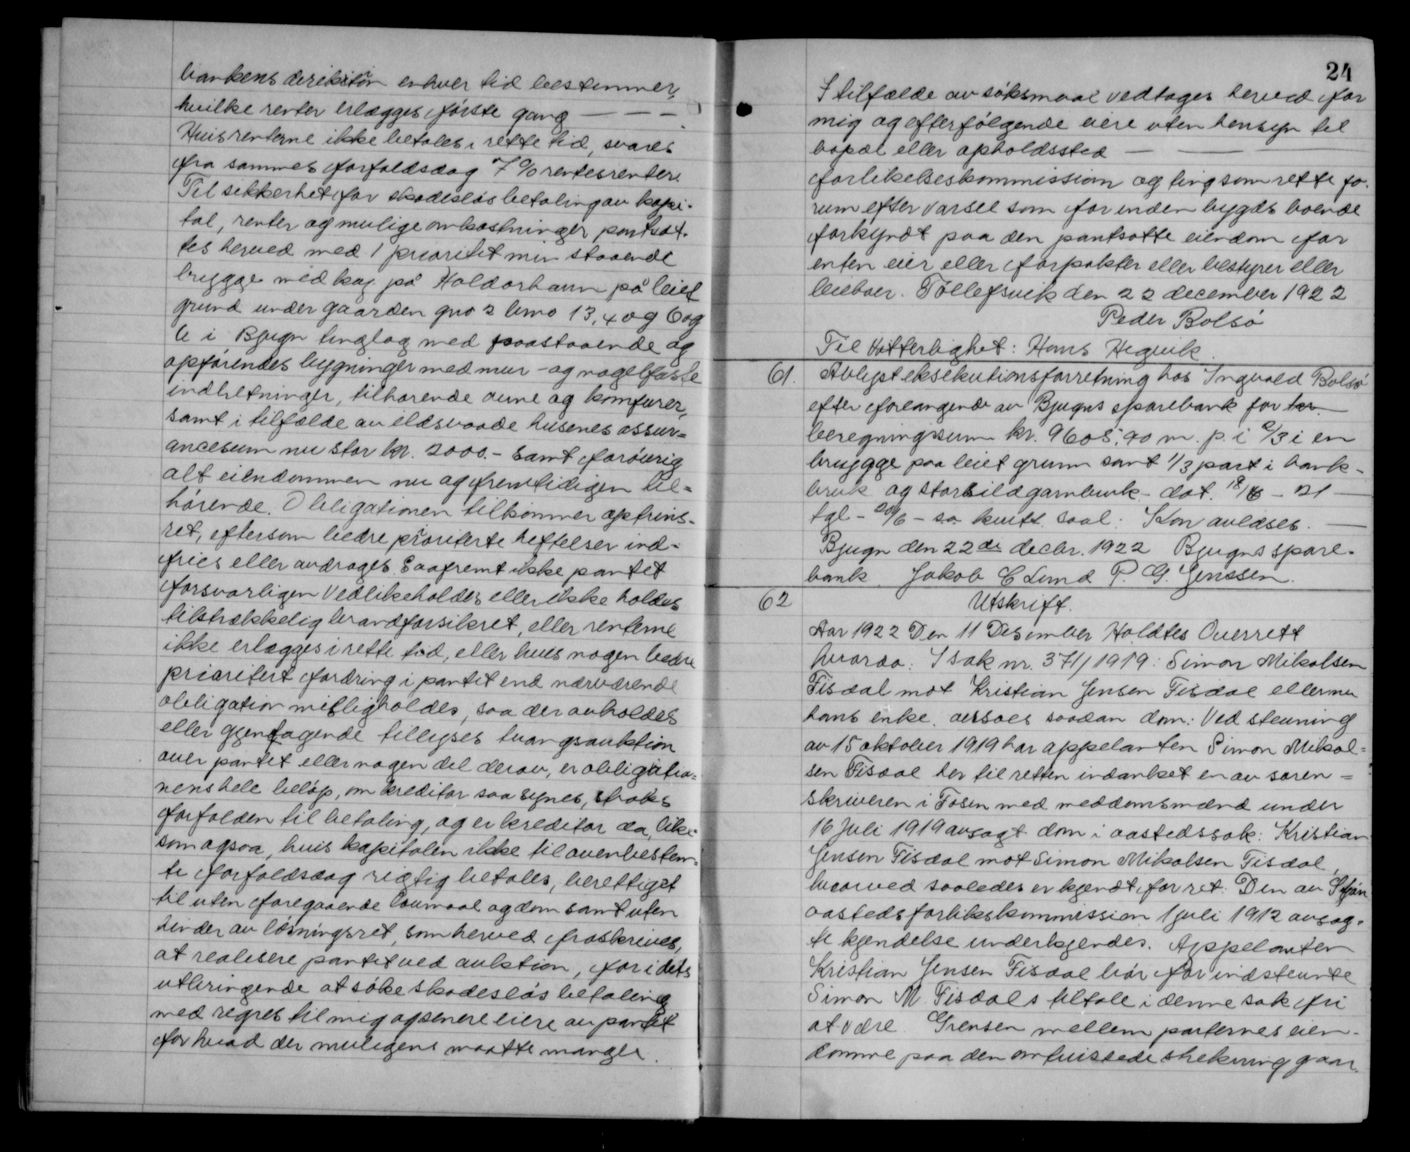 bankens direktion enhver tid bestemmer,
hvilke renter erlægges første gang — — —
Hvis renterne ikke betales i rette tid, svares
fra sammes forfaldsdag 7 % rentesrenter.
Til sikkerhet for skadesløs betaling av kapi-
tal, renter og mulige omkostninger pantsæt-
tes herved med 1 prioritet min staaende
brygge med kaj på Holdorhavn på leiet
grund under gaarden gno 2 bno 13, 4 og 6 og
i Bjugn tinglag med paastaaende og
opførendes bygninger med mur - og nagelfaste
indretninger, tilhørende ovne og komfyrer,
samt i tilfælde av ildsvaade husenes assur=
ancesum nu stor kr. 2000.- samt forøvrig
alt eiendommen nu og fremtidigen til=
hørende. Obligationen tilkommer optrins-
ret, eftersom bedre prioriterte heftelser ind-
fries eller avdrages. Saafremt ikke pantet
forsvarligen vedlikeholdes eller ikke holdes
tilstrækkelig brandforsikret, eller renterne
ikke erlægges i rette tid, eller hvis nogen bedre
prioritert fordring i pantet end nærværende
obligation misligholdes, saa der avholdes
eller gjentagende tillyses tvangsauktion
over pantet eller nogen del derav, er obligatio=
nens hele beløp, om kreditor saa synes, straks
forfalden til betaling, og er kreditor da, like-
som ogsaa, hvis kapitalen ikke til ovenbestem-
te forfaldsdag rigtig betales, berettiget
til uten foregaaende lovmaal og dom samt uten
hinder av løsningsret, som herved fraskrives,
at realisere pantet ved auktion, for i dets
utbringende at søke skadesløs betaling
med regres til mig og senere eiere av pantet
for hvad der muligens maatte mangle.
24
I tilfælde av søksmaal vedtages herved for
mig og efterfølgende eiere uten hensyn til
bopæl eller opholdssted — — —
forlikelseskommission og ting som rette fo-
rum efter varsel som for inden bygds boende
forkyndt paa den pantsatte eiendom for
enten eier eller forpakter eller bestyrer eller
leieboer. Tøllefsvik den 22 december 1922
Peder Bolsø
Til Vitterlighet: Hans Hegvik.
61. Avlyst eksekutionsforretning hos Ingvald Bolsø
efter forlangende av Bjugns sparebank for
beregningssum kr. 9605,90 m. p. i 2/3 i en
brygge paa leiet grunn samt 1/3 part i bank-
bruk og storsildgarnbruk - dat. 18/6 - 21 —
tgl - 20/6 - sa kvitt. saal: Kan avlæses. —
Bjugn den 22de decbr. 1922 Bjugns spare-
bank. Jakob C Lund P. G. Jenssen.
62 Utskrift.
Aar 1922 Den 11 Desember Holdtes Overrett
hvorda: I sak nr. 371/1919: Simon Mikalsen
Tisdal mot Kristian Jensen Tisdal eller nu
hans enke. avsaes saadan dom: Ved stevning
av 15 oktober 1919 har appelanten Simon Mikal=
sen Tisdal her til retten indanket en av soren=
skriveren i Fosen med meddomsmænd under
16 juli 1919 avsagt dom i aastedssak: Kristian
Jensen Tisdal mot Simon Mikalsen Tisdal,
hvorved saaledes er kjendt for ret: Den av Stjør.
aasteds forlikskommission 1 juli 1912 avsag-
te kjendelse underkjendes. Appelanten
Kristian Jensen Tisdal bør for indstevnte
Simon M. Tisdals tiltale i denne sak fri
at være Grensen mellem parternes eien-
domme paa den omtvistede strekning gaar